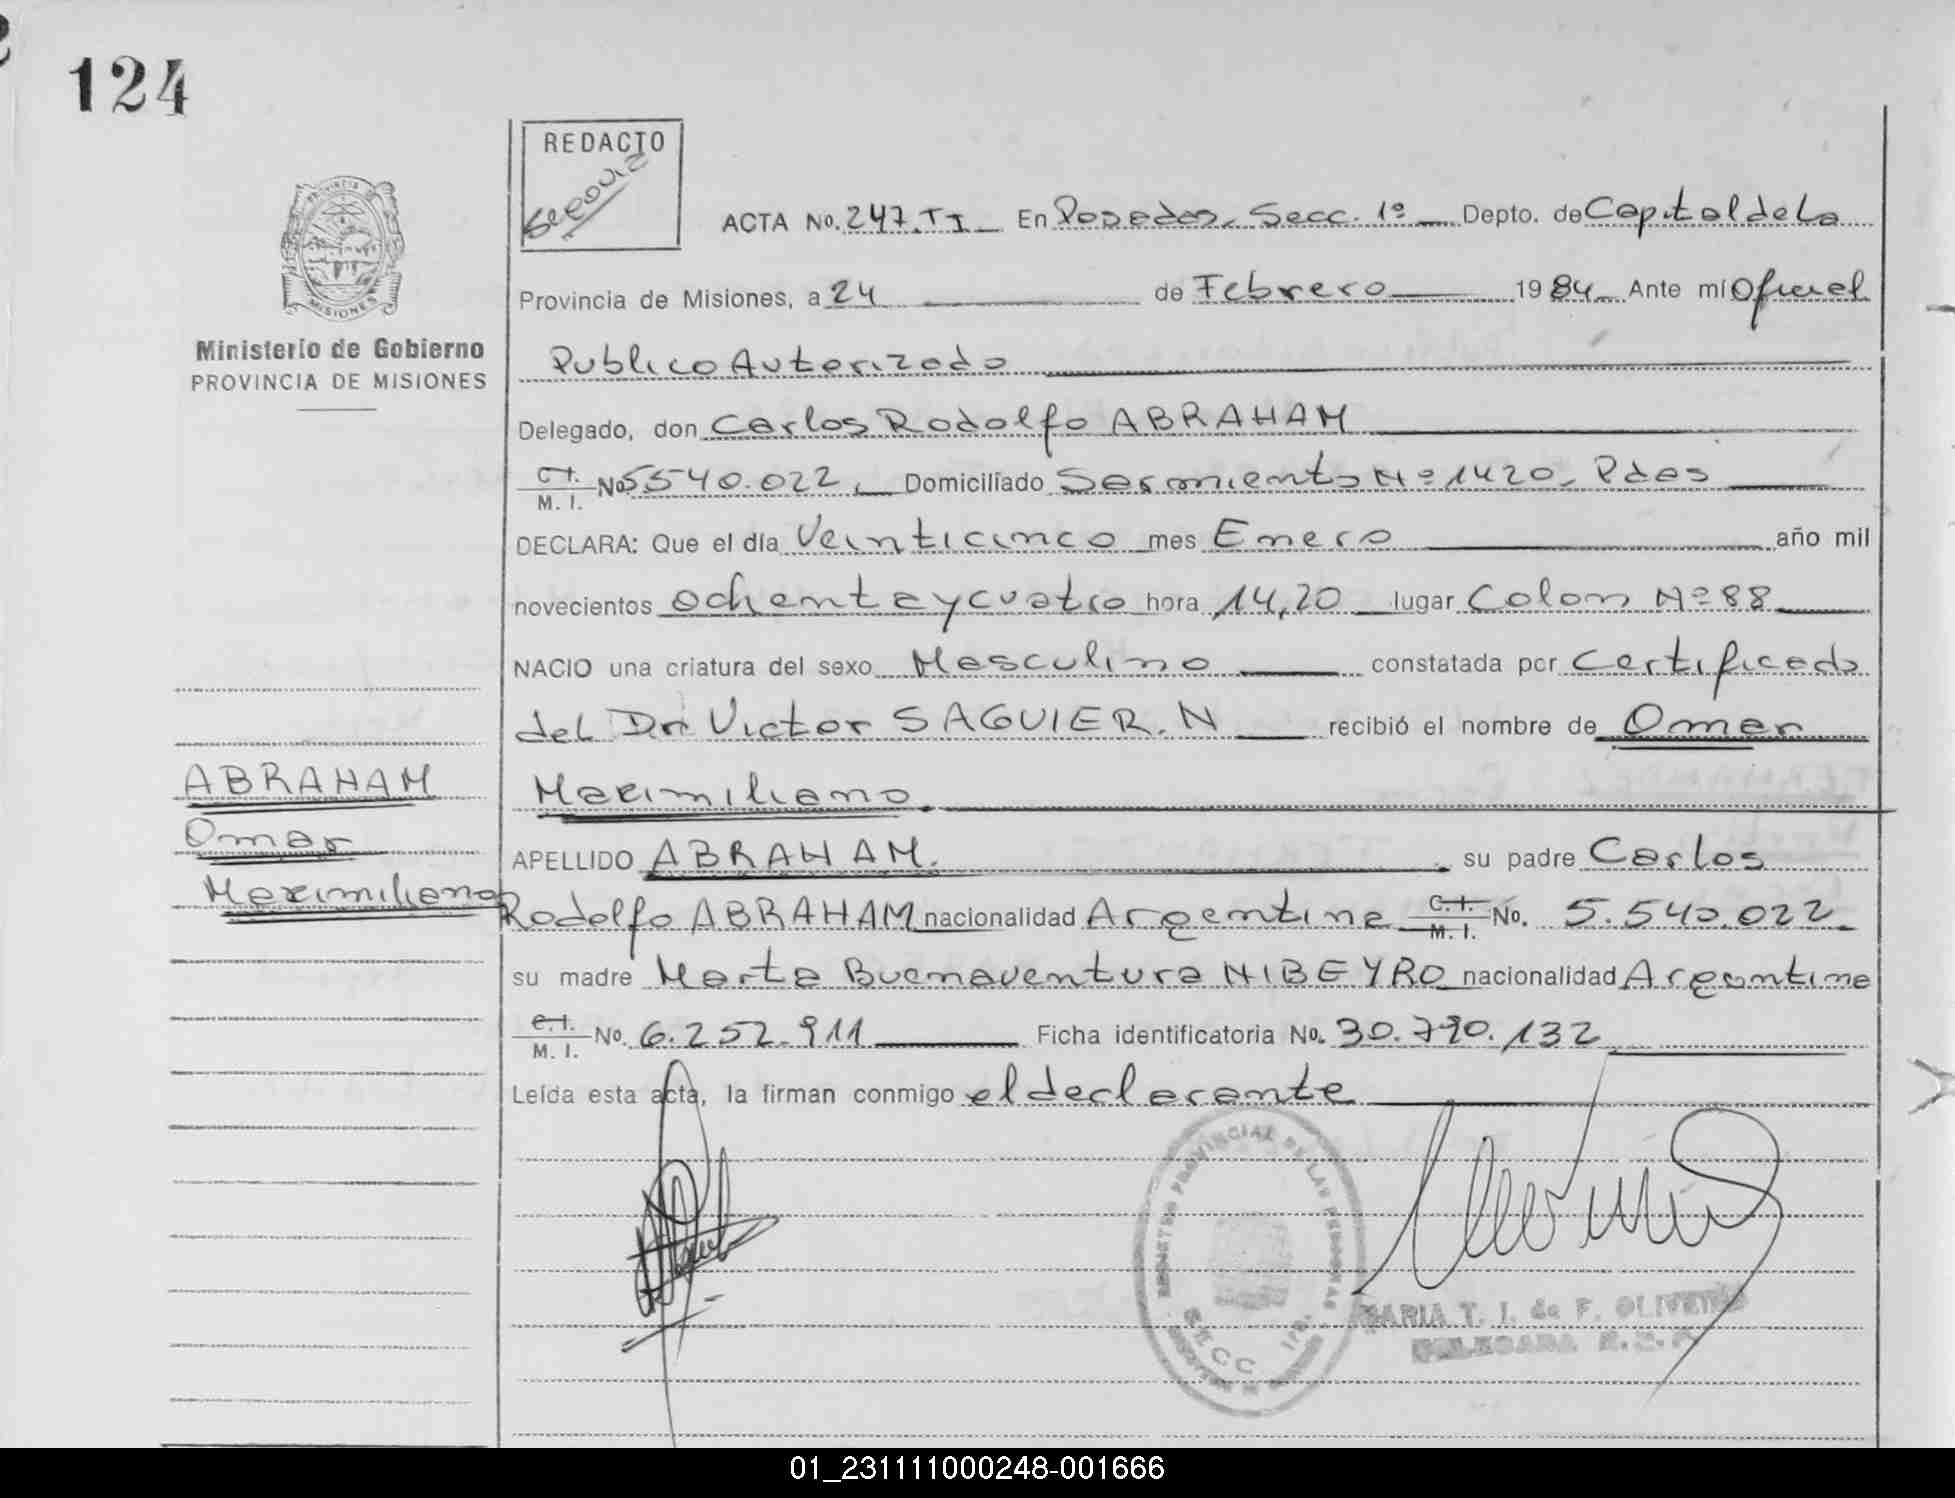 124
REDACTO
Segovia
ACTA No. 247. TI En Posadas, Secc. 1º Depto. de Capital de La
Provincia de Misiones, a 24 de Febrero 1984 Ante mí Oficial
Ministerio de Gobierno
PROVINCIA DE MISIONES
Publico Autorizado
Delegado, don Carlos Rodolfo ABRAHAM
C.I. M. I. No 5.540.022. Domiciliado Sarmiento Nº 1420. Pdas
DECLARA: Que el día Veinticinco mes Enero año mil
novecientos ochenta y cuatro hora 14,20 lugar Colon Nº 88
NACIO una criatura del sexo Masculino constatada por Certificado
del Dr. Victor SAGUIER. N recibió el nombre de Omar
Maximiliano.
ABRAHAM
Omar
Maximiliano
APELLIDO ABRAHAM. su padre Carlos
Rodolfo ABRAHAM nacionalidad Argentina C.I. M. I. No. 5.540.022
su madre Marta Buenaventura NIBEYRO nacionalidad Argentina
C.I. M. I. No. 6.252.911 Ficha identificatoria No. 30.790.132
Leída esta acta, la firman conmigo el declarante
REGISTRO PROVINCIAL DE LAS PERSONAS
SECC. 1ra.
MARIA T. I. de F. OLIVEIRA
DELEGADA R.C.P.
01_231111000248-001666